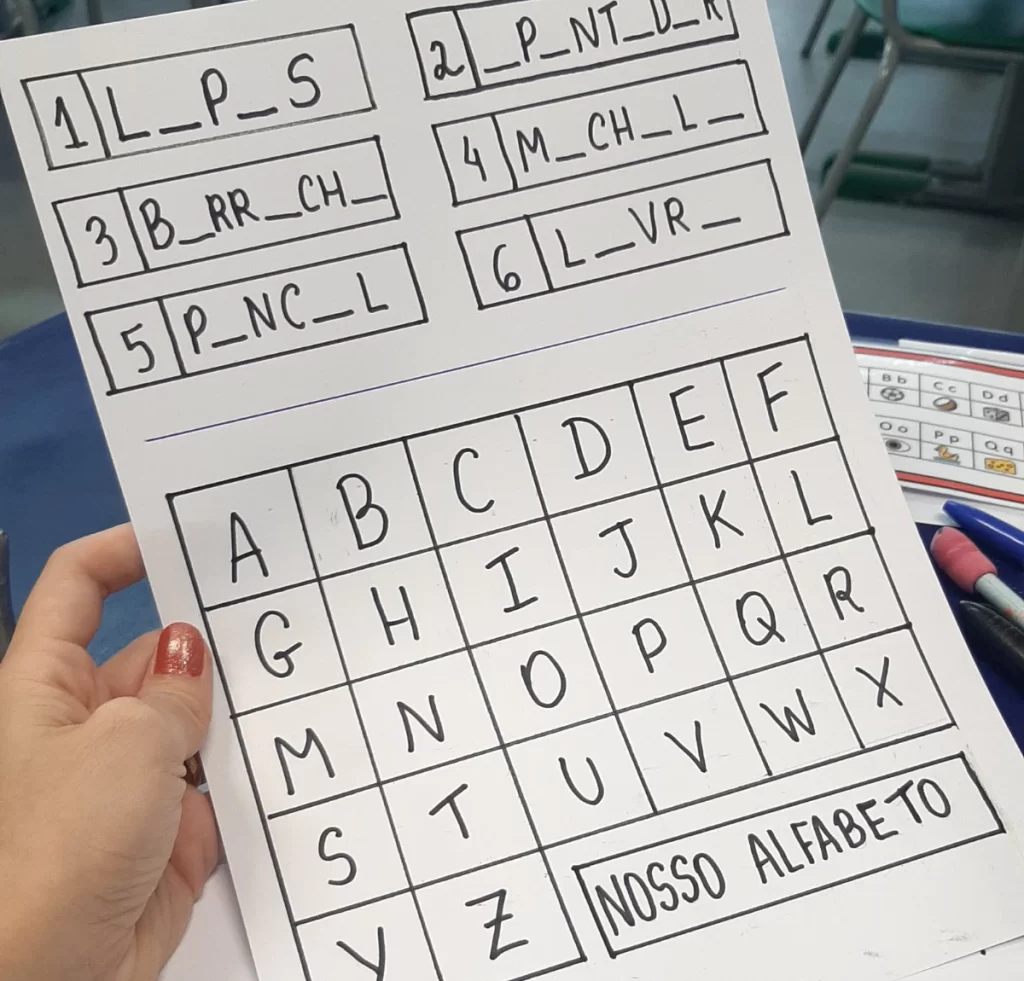 1 L_P_S
2 _P_NT_D_R
3 B_RR_CH_
4 M_CH_L_
5 P_NC_L
6 L_VR_
A B C D E F
G H I J K L
M N O P Q R
S T U V W X
Y Z
NOSSO ALFABETO
Bb Cc Dd
Oo Pp Qq